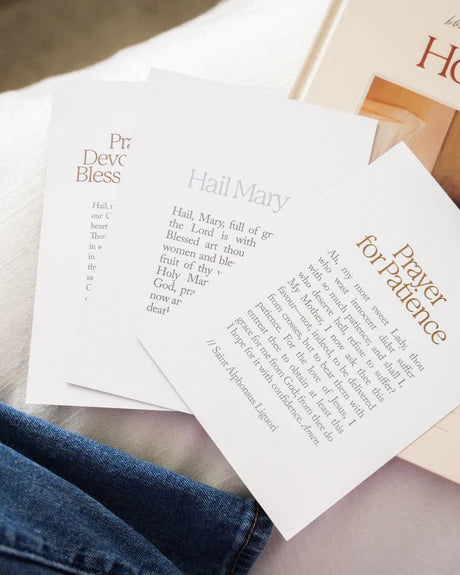 Pra
Devo
Bless
Hail,
our
heart
Thou
in
in
the
Hail Mary
Hail, Mary, full of
the Lord is with
Blessed art thou
women and
fruit of thy
Holy Mar
God,
now ar
deat
Prayer
for Patience
Ah, my most sweet Lady, thou
who wast innocent didst suffer
with so much patience; and shall I,
who deserve hell, refuse to suffer?
My Mother, I now ask thee this
favour—not, indeed, to be delivered
from crosses, but to bear them with
patience. For the love of Jesus, I
entreat thee to obtain at least this
grace for me from God; from thee do
I hope for it with confidence. Amen.
// Saint Alphonsus Liguori
Ho